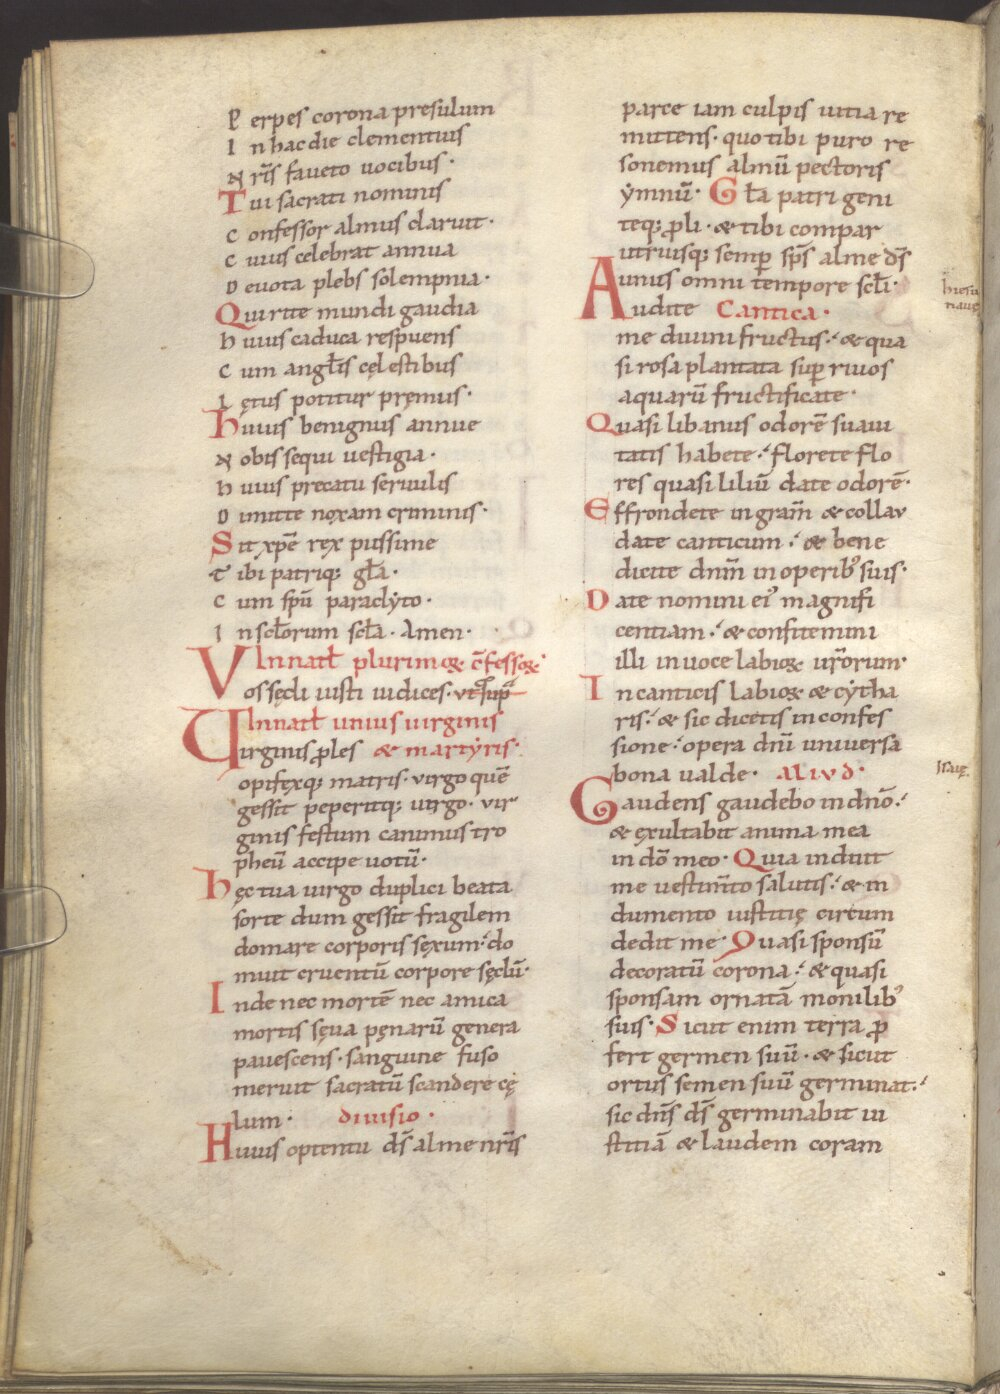 P erpes corona presulum
I n hac die clementius
N r̄is faueto uocibus·
T ui sacrati nominis
C onfessor almus claruit·
C uius celebrat annua
D euota plebs solempnia·
Q ui rite mundi gaudia
h uius caduca respuens
C um angl̄is cęlestibus
L ętus potitur pręmiis·
h uius benignus annue
N obis sequi uestigia·
h uius precatu seruulis
D imitte noxam criminis·
S it xp̄e rex piissime
T ibi patriq; gl̄a·
C um sp̄u paraclyto·
I n scl̄orum scl̄a· Amen·
IN natł plurimoꝝ c̄fessoꝝ
Vos sęcli iusti iudices· ut sup̄
IN natł unius uirginis
Uirginis ꝓles & martyris·
opifęxq; matris· uirgo quē
gessit peperitq; uirgo· vir
ginis festum canimus tro
pheū accipe uotū·
hęc tua uirgo duplici beata
sorte dum gessit fragilem
domare corporis sęxum· do
muit cruentū corpore sęclū·
Inde nec mortē nec amica
mortis sęua pęnarū genera
pauescens· sanguine fuso
meruit sacratū scandere cę
lum· diuisio·
Huius optentu d̄s alme nr̄is
parce iam culpis uitia re
mittens· quo tibi puro re
sonemus almū pectoris
ẏmnū· Gl̄a patri geni
teq; ꝓli· & tibi compar
utriusq; semper sp̄s alme d̄s
unus omni tempore scl̄i·
Audite Cantica·
me diuini fructus· & qua
si rosa plantata sup̱ riuos
aquarū fructificate·
Quasi libanus odorē suaui
tatis habete· florete flo
res quasi liliū date odorē·
Effrondete in gram̄ & collau
date canticum· & bene
dicite dn̄m in operib' suis·
Date nomini ei' magnifi
centiam· & confitemini
illi in uoce labioꝝ ur̄orum·
In canticis labioꝝ & cẏtha
ris· & sic dicetis in confes
sione· opera dn̄i uniuersa
bona ualde· ALIVD·
Gaudens gaudebo in dn̄o·
& ęxultabit anima mea
in dō meo· Quia induit
me uestim̄to salutis· & in
dumento iustitię circum
dedit me· Quasi sponsū
decoratū corona· & quasi
sponsam ornatā monilib'
suis· Sicut enim terra ꝓ
fert germen suū· & sicut
ortus semen suū germinat·
sic dn̄s d̄s germinabit iu
stitiā & laudem coram
hiesu
naue
Isaię